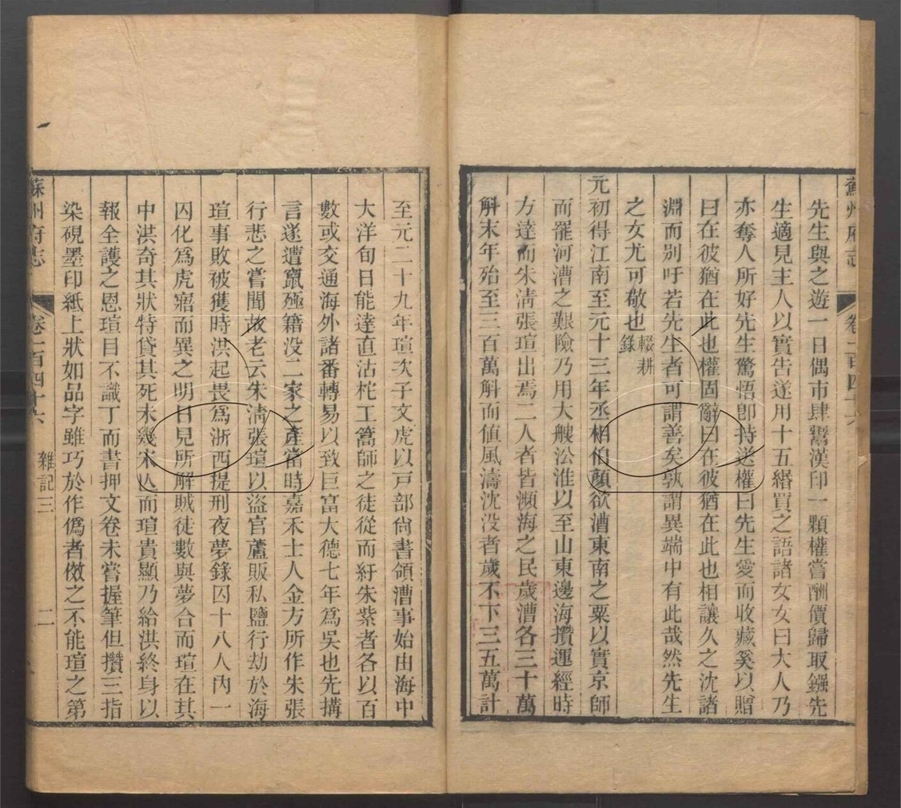 蘇州府志 卷一百四十六
先生與之遊一日偶市肆鬻漢印一顆權嘗酬價歸取鏹先
生適見主人以實告遂用十五緡買之語諸女女曰大人乃
亦奪人所好先生驚悟卽持送權曰先生愛而收藏奚以贈
曰在彼猶在此也權固辭曰在彼猶在此也相讓久之沈諸
淵而別吁若先生者可謂善矣孰謂異端中有此哉然先生
之女尤可敬也輟耕錄
元初得江南至元十三年丞相伯顏欲漕東南之粟以實京師
而罷河漕之艱險乃用大艘沿淮以至山東邊海攢運經時
方達而朱淸張瑄出焉二人者皆瀕海之民歲漕各三十萬
斛末年殆至三百萬斛而値風濤沈沒者歲不下三五萬計
至元二十九年瑄次子文虎以戸部尙書領漕事始由海中
大洋旬日能達直沽柁工篙師之徒從而紆朱紫者各以百
數或交通海外諸番轉易以致巨富大德七年爲吳也先搆
言遂遭竄殛籍沒二家之產當時嘉禾士人金方所作朱張
行悲之嘗聞故老云朱淸張瑄以盜官蘆販私鹽行劫於海
瑄事敗被獲時洪起畏爲浙西提刑夜夢錄囚十八人內一
囚化爲虎寤而異之明日見所解賊徒數與夢合而瑄在其
中洪奇其狀特貸其死未幾宋亾而瑄貴顯乃給洪終身以
報全護之恩瑄目不識丁而書押文卷未嘗握筆但攢三指
染硯墨印紙上狀如品字雖巧於作僞者倣之不能瑄之第
蘇州府志 卷一百四十六 雜記三 二